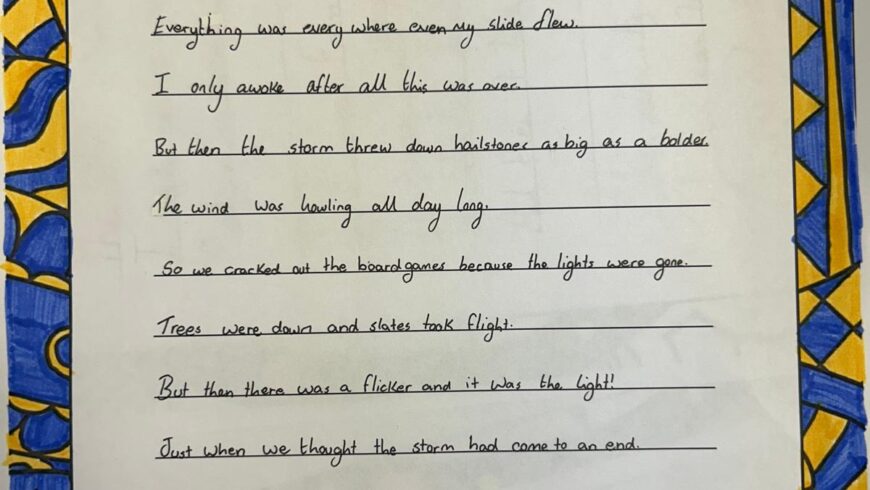 Everything was every where even my slide flew.
I only awoke after all this was over.
But then the storm threw down hailstones as big as a bolder.
The wind was howling all day long.
So we cracked out the boardgames because the lights were gone.
Trees were down and slates took flight.
But then there was a flicker and it was the light!
Just when we thought the storm had come to an end.